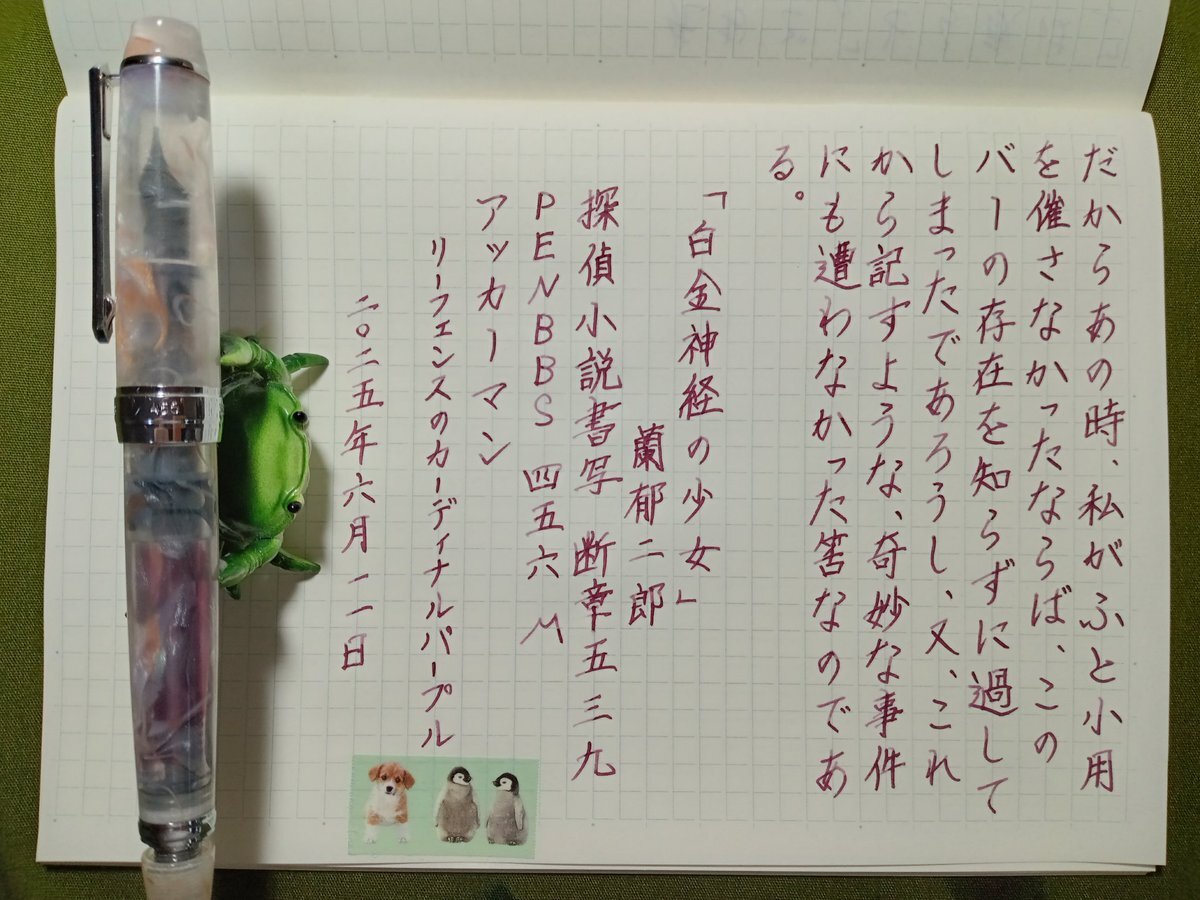 だからあの時、私がふと小用
を催さなかったならば、この
バーの存在を知らずに過して
しまったであろうし、又、これ
から記すような、奇妙な事件
にも遭わなかった筈なのであ
る。
「白金神経の少女」
蘭郁二郎
探偵小説書写 断章五三九
PENBBS 四五六 M
アッカーマン
リーフェンスのカーディナルパープル
二〇二五年六月一一日